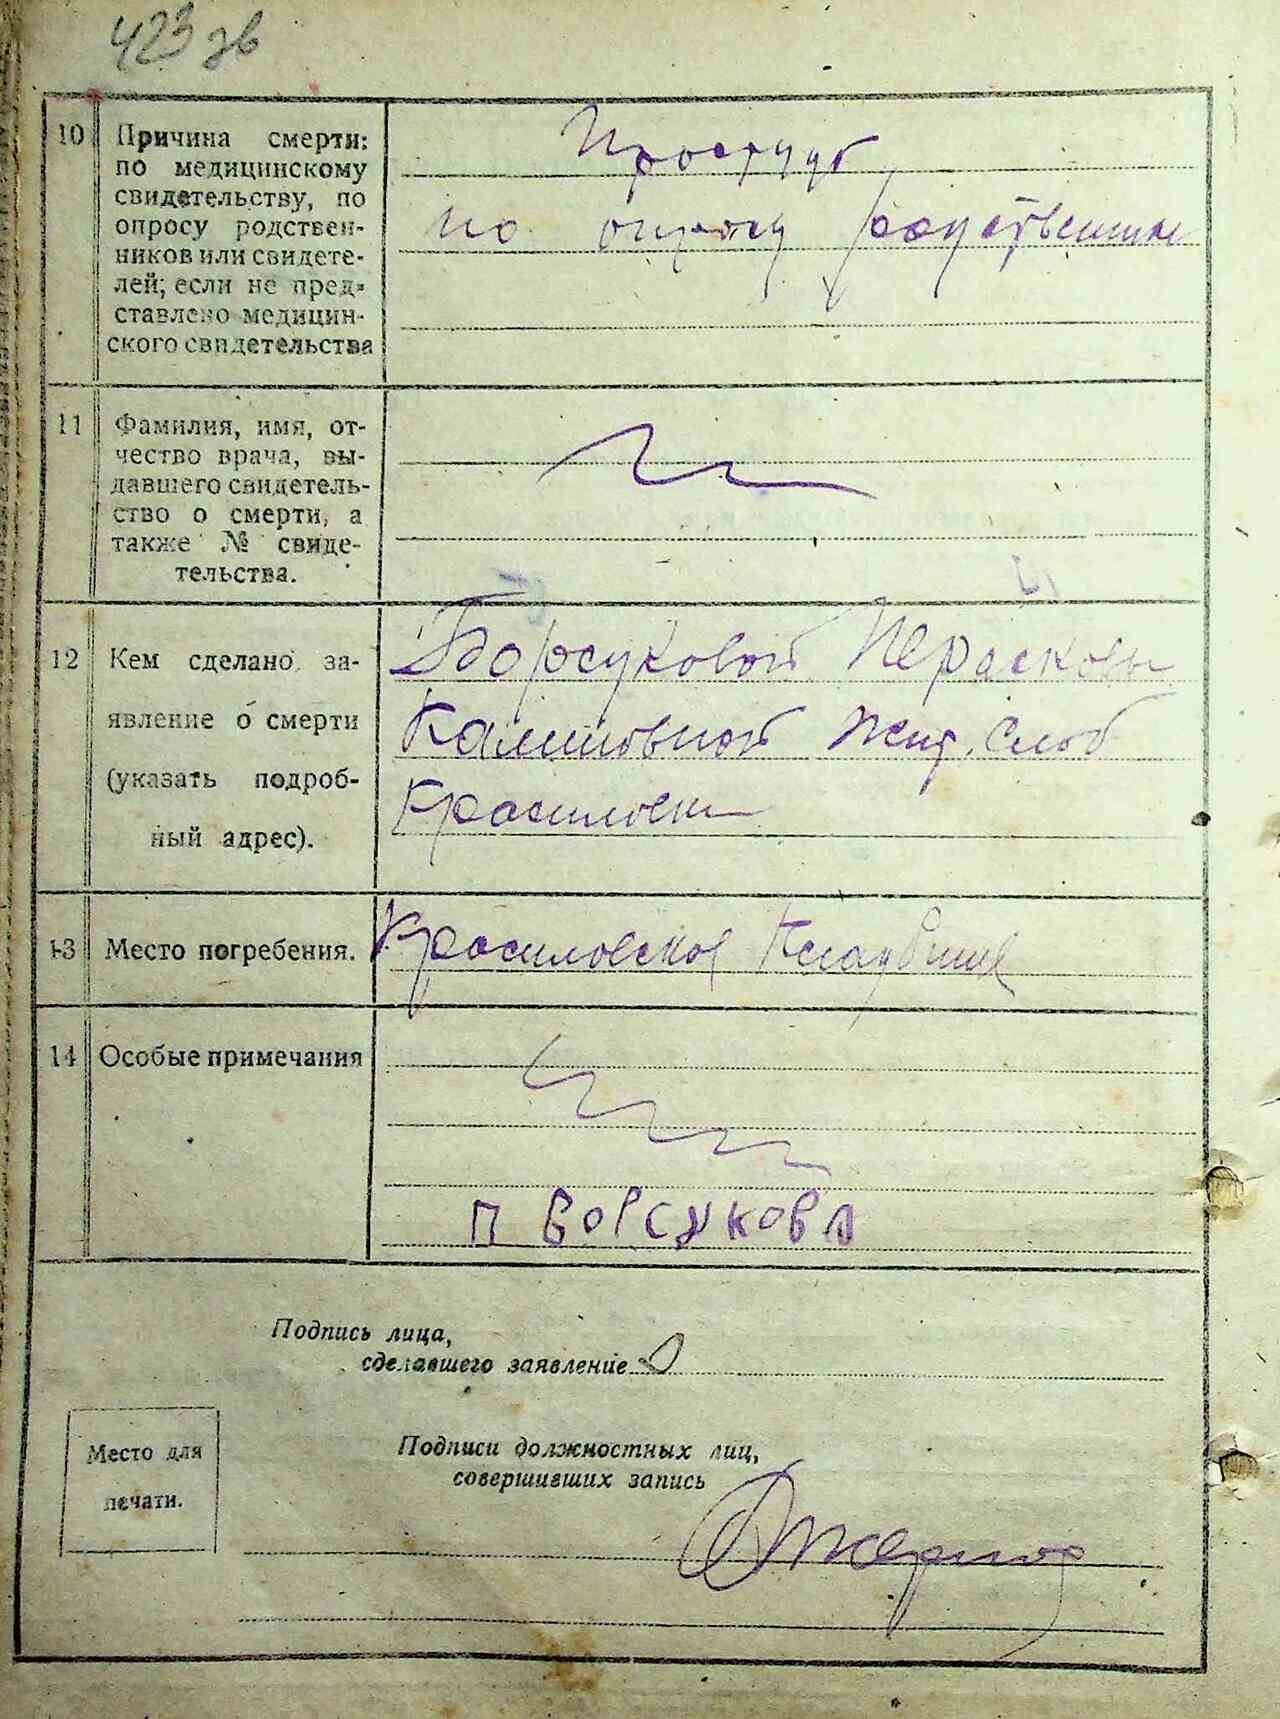 423 зв
10
Причина смерти:
по медицинскому
свидетельству, по
опросу родствен-
ников или свидете-
лей; если не пред-
ставлено медицин-
ского свидетельства
Простуд
по опросу родственник
11
Фамилия, имя, от-
чество врача, вы-
давшего свидетель-
ство о смерти, а
также № свиде-
тельства.
12
Кем сделано за-
явление о смерти
(указать подроб-
ный адрес).
Борсуковой Перасковы
жит. Слоб
Красиловки
13
Место погребения.
Красиловское Кладбище
14
Особые примечания
П БОРСУКОВА
Подпись лица,
сделавшего заявление
Место для
печати.
Подписи должностных лиц,
совершивших запись